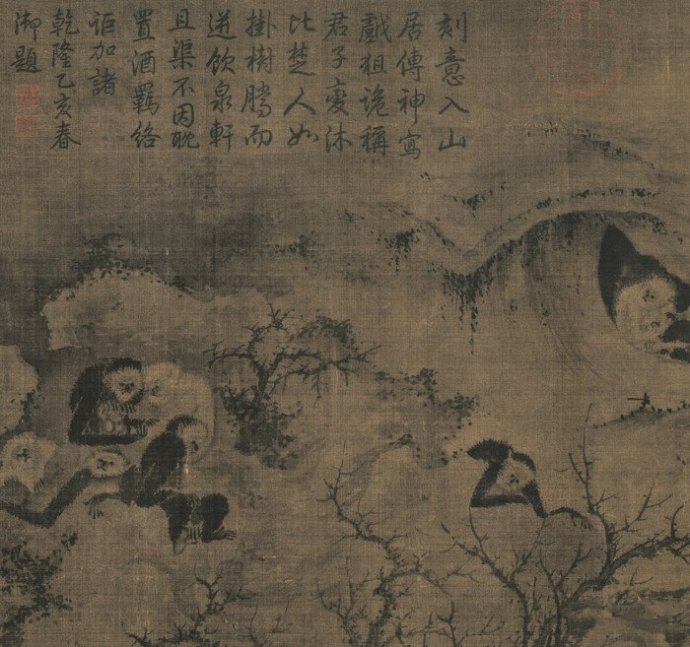 刻意入山
居傳神寫
戲狙詭稱
君子變沐
比楚人如
掛樹騰而
迸飲泉軒
且渠不因耽
置酒羈絡
詎加諸
乾隆乙亥春
御題